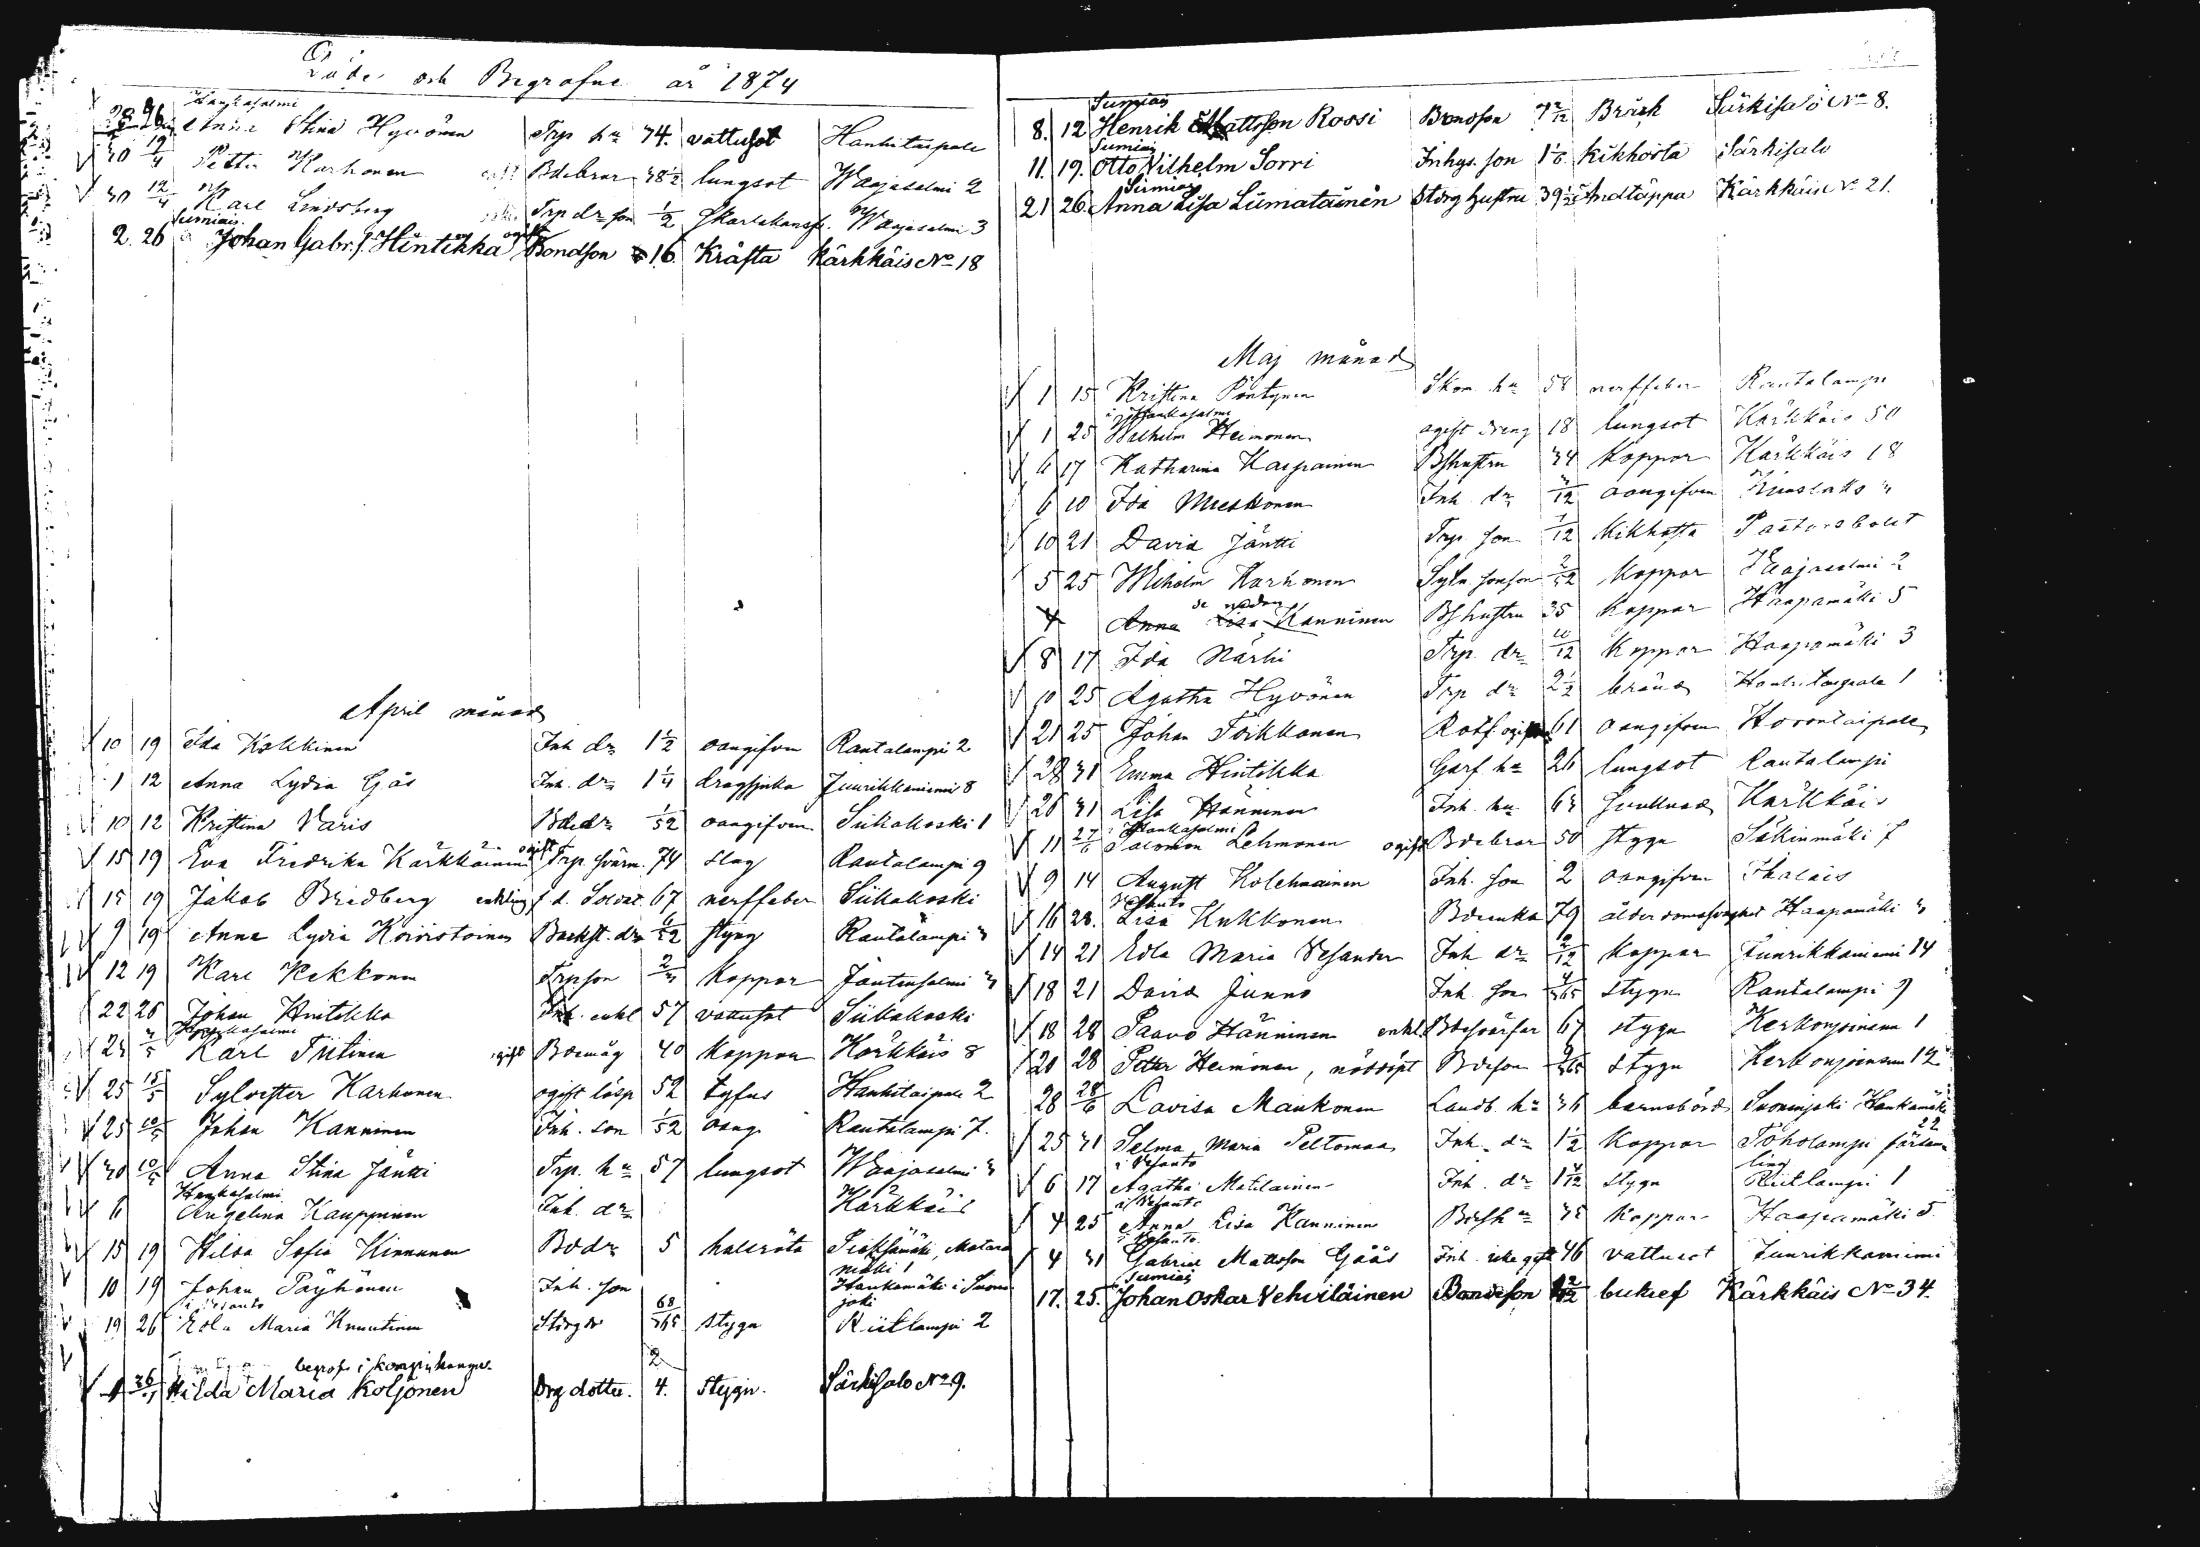 Döde och Begrafne år 1874
Hankasalmi
Anna Stina Hyvönen Trp hu 74. vattusot Hankitaipale
30 19/4 Petter Karhonen Bdebror 38 1/2 lungsot Waajasalmi 2
30 12/4 Karl Lindsberg Trp dr son 1/2 skarlakansf. Waajasalmi 3
Sumiais
2. 26 Johan Gabr. Hintikka ogift Bondson 16 Kräfta Kärkkäis No 18
April månad
10 19 Ida Kokkinen Inh dr 1 1/2 oangifven Rantalampi 2
1 12 Anna Lydia Gås Inh. dr 1 1/4 dragsjuka Juurikkaniemi 8
10 12 Kristina Varis Bdedr 1/52 oangifven Siikakoski 1
15 19 Eva Fredrika Kärkkäinen ogift Trp svärm. 74 slag Rantalampi 9
15 19 Jakob Bredberg enkling f d. Soldat 67 nerffeber Siikakoski
9 19 Anna Lydia Koivistoinen Backst. dr 6/52 styng Rantalampi
12 19 Karl Kekkonen Trpson koppor Jäntinsalmi
22 26 Johan Hintikka Inh. enkl 57 vattusot Siikakoski
Hankasalmi
Karl Tiitinen ogift Bdemåg 40 koppor Kärkkäis 8
25 15/5 Sylvester Karhonen ogift lösp 52 tyfus Hankitaipale 2
25 10/5 Johan Kanninen Inh. son 1/52 oang. Rantalampi 7.
30 10/5 Anna Stina Jäntti Trp. hu 57 lungsot Waajasalmi
Hankasalmi
Angelina Kauppinen Inh. dr Kärkkäis
15 19 Hilda Sofia Kinnunen Bdedr 5 halsröta Pieksämäki, Matara
mäki 1
10 19 Johan Päyhönen Inh. son Hankamäki i Suonen
joki
i Vesanto
19 26 Edla Maria Knuutinen Storp dr 68/365 stygn Riitlampi 2
begrafs i Konginkangas.
26/4 Hilda Maria Koljonen Drg dotter. 2/4. stygn. Särkisalo No 9.
Sumiais
8. 12 Henrik Mattsson Rossi Bondson 7/12 Bråck Särkisalo No 8.
Sumiais
11. 19. Otto Vilhelm Sorri Inhys. son 1 1/6 kikhosta Särkisalo
Sumiais
21 26 Anna Lisa Liimatainen Storp hustru 39 Andtäppa Kärkkäis No 21.
Maj månad
1 15 Kristina Pöntynen Skom. hu 58 nerffeber Rantalampi
i Hankasalmi
1 25 Wilhelm Heimonen ogift dreng 18 lungsot Kärkkäis 50
6 17 Katharina Kaipainen Bshustru 34 koppor Kärkkäis 18
6 10 Ida Mieskonen Inh. dr /12 oangifven
10 21 David Jäntti Trp son /12 kikhosta Pastorsbolet
5 25 Wilhelm Karhonen Sytn. sonson /52 koppor Waajasalmi 2
se nedan
4 Anna Lisa Kanninen Bshustru 35 koppor Haapamäki 5
8 17 Ida Närhi Trp. dr 10/12 koppor Haapamäki 3
10 25 Agatha Hyvönen Trp dr 2 1/2 bränd Hankitaipale 1
21 25 Johan Toikkonen Rotf. ogift 61 oangifven Horontaipale
28 31 Emma Hintikka Garf hu 26 lungsot Rantalampi
26 31 Lisa Hänninen Inh. hu Kärkkäis
i Hankasalmi
11 27/6 Salomon Lehmonen ogift Bdebror 50 stygn Säkinmäki 7
9 14 August Kolehmainen Inh. son 2 oangifven Ihalais
Vesanto
16 28. Lisa Kukkonen Bdeenka 79 ålderdomssvaghet Haapamäki
14 21 Edla Maria Vesander Inh dr /12 koppor Juurikkaniemi 14
18 21 David Junno Inh. son /365 stygn Rantalampi 9
18 28 Paavo Hänninen enkl Bdesvärfar 67 stygn Kerkonjoensuu 1
20 28 Petter Heimonen, nöddöpt Bdeson /365 stygn Kerkonjoensuu 12
28 28/6 Lovisa Maukonen Landb. hu 36 barnsbörd Suonenjoki Hankamäki
22
25 31 Selma Maria Peltomaa Inh. dr 1 1/2 koppor Toholampi
i Vesanto
6 17 Agatha Matilainen Inh. dr 1 /12 stygn Riitlampi 1
i Vesanto
4 25 Anna Lisa Kanninen Bdesh u 35 koppor Haapamäki 5
i Vesanto
4 31 Gabriel Mattsson Gåås Inh. icke gift 46 vattusot Juurikkaniemi
i Sumiais
17. 25. Johan Oskar Vehviläinen Bondeson /12 bukref Kärkkäis No 34.